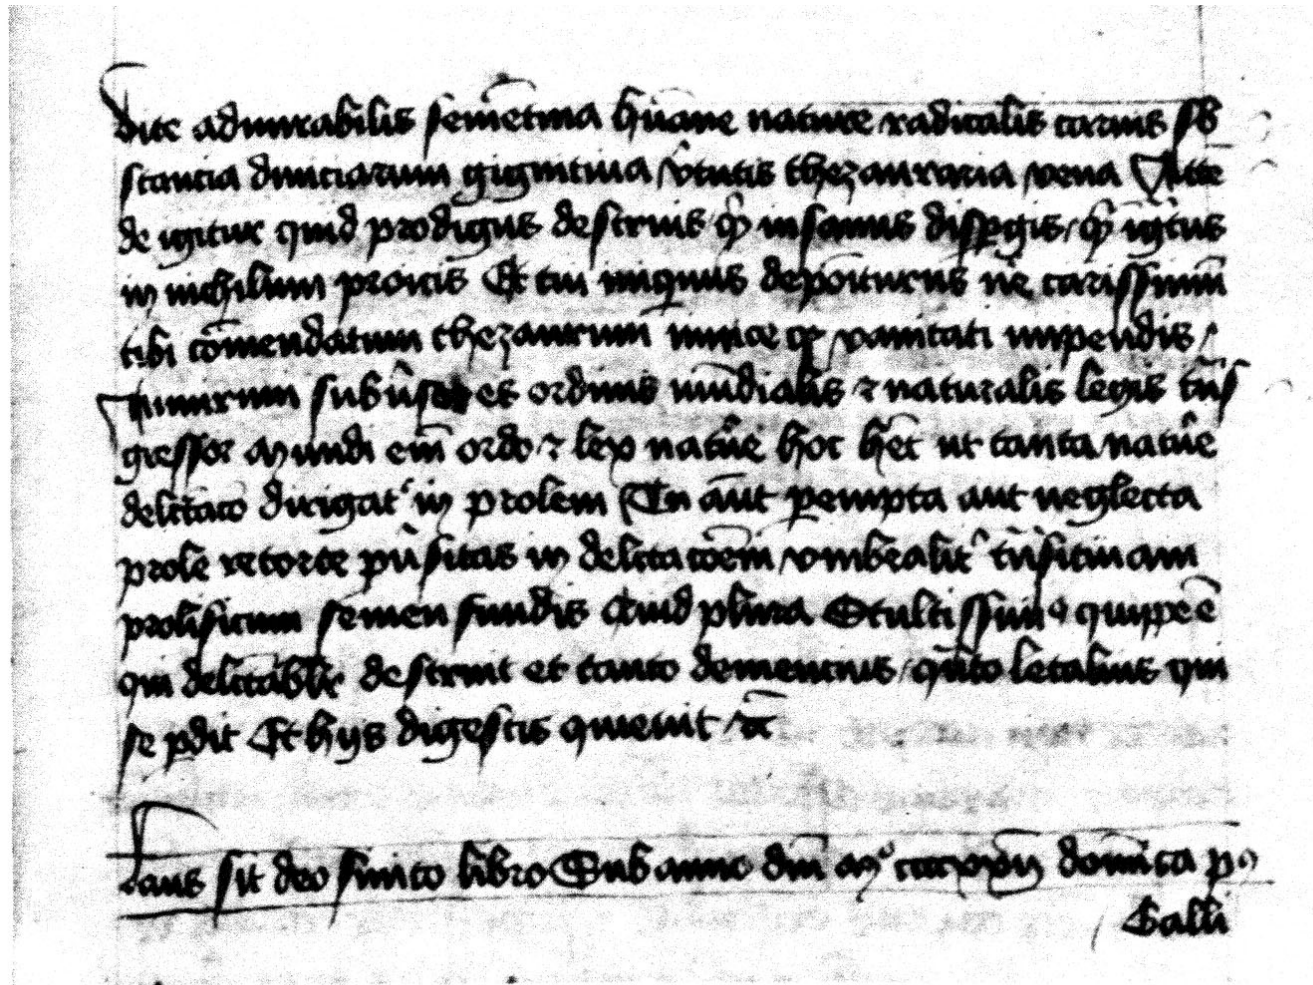 vite admirabilis sem̄etina hūane nature radicalis carnis sb
stancia diuiciarum gignitiua v̾tutis thezauraria vena Atte
de igitur quid prodigus destruis qͥ insanus disꝑgis qͥ īgͣtus
in nichilum proicis Et tu iniquus depōiturus ne carissimū
tibi cōmendatum thezaurum vanitati inpendis
Nimirum es ordinis mūdialis ⁊ naturalis legis tͣns
gressor Mundi em̄ ordo ⁊ lex natūe hoc hēt ut tanta natūe
delc̄tacō dirigatͬ in prolem Tu aūt ꝑempta aut neglecta
prole retorte in delc̄tacōem vmbralitͬ tͣnsitiuam
prolificum semen fundis Quid plura Stultissimꝰ quippe ē
qui delc̄tabilr̄ destruit et tanto demencius quāto letalius qui
se ꝑdit Et hijs digestis quieuit ⁊c̄
Laus sit deo finito libro Sub anno dnī Mͦ domīca pꝰ
Galli